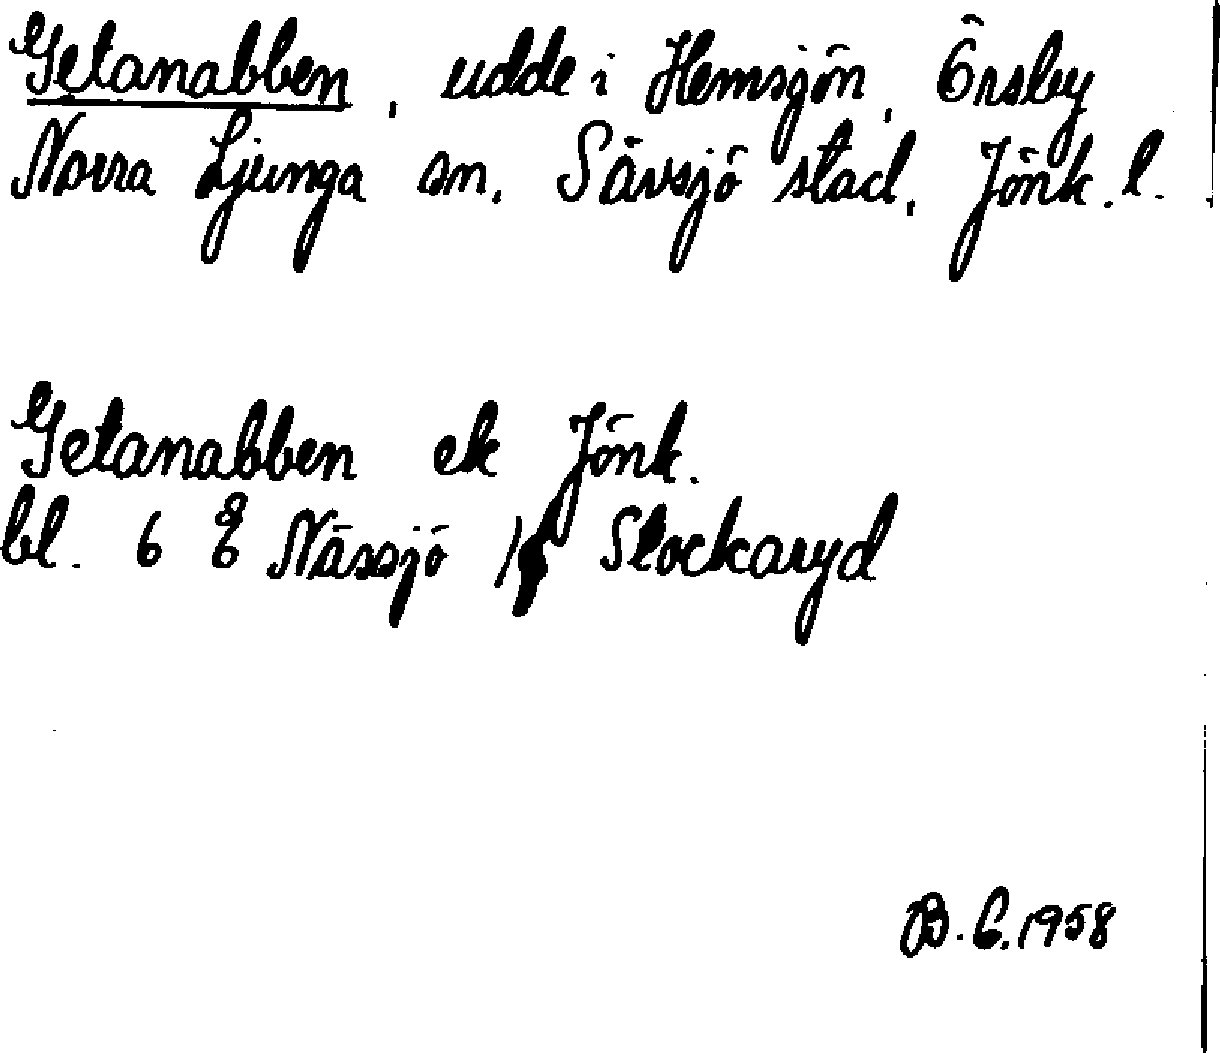 Getanabben, udde i Hemsjön, Örsby
Norra Ljunga sn, Sävsjö stad, Jönk. l.
Getanabben ek Jönk.
bl. 6 Nässjö Stockaryd
B. E. 1958